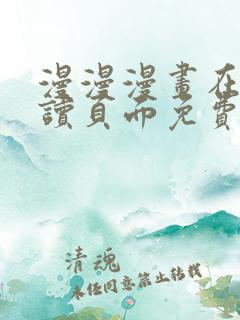 漫漫漫畫在
讀頁面免費
清魂
未經同意禁止轉載